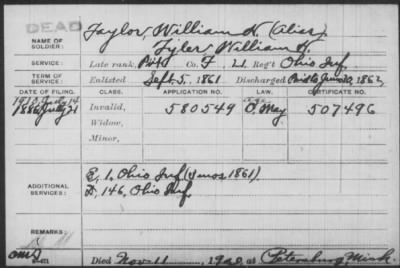 DEAD
Taylor, William H. (Alias)
NAME OF SOLDIER: Tyler William H.
SERVICE: Late rank, Pvt Co. F 21 Reg't Ohio Inf.
TERM OF SERVICE: Enlisted Sept. 5, 1861 Discharged 1862
DATE OF FILING. CLASS. APPLICATION NO. LAW. CERTIFICATE NO.
1912 July 14
1886 July 21 Invalid, 580549 May 507496
Widow,
Minor,
ADDITIONAL SERVICES: E, 1, Ohio Inf (3mos 1861)
D, 146, Ohio Inf.
REMARKS:
Died Nov 11, 1920 at Petersburg Mich.